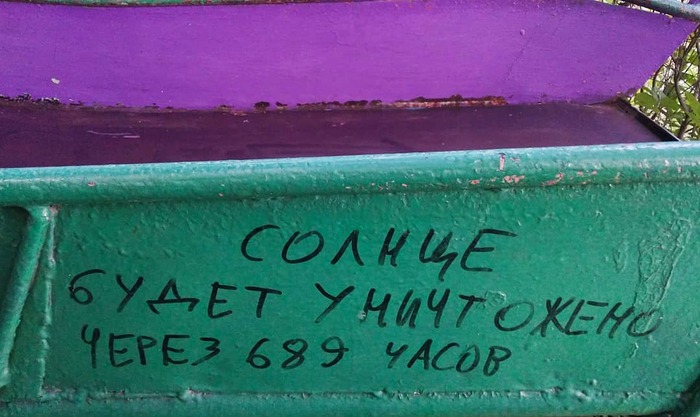 СОЛНЦЕ
БУДЕТ УНИЧТОЖЕНО
ЧЕРЕЗ 689 ЧАСОВ